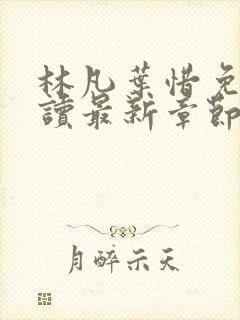 林凡葉惜免
讀最新章節
月醉示天